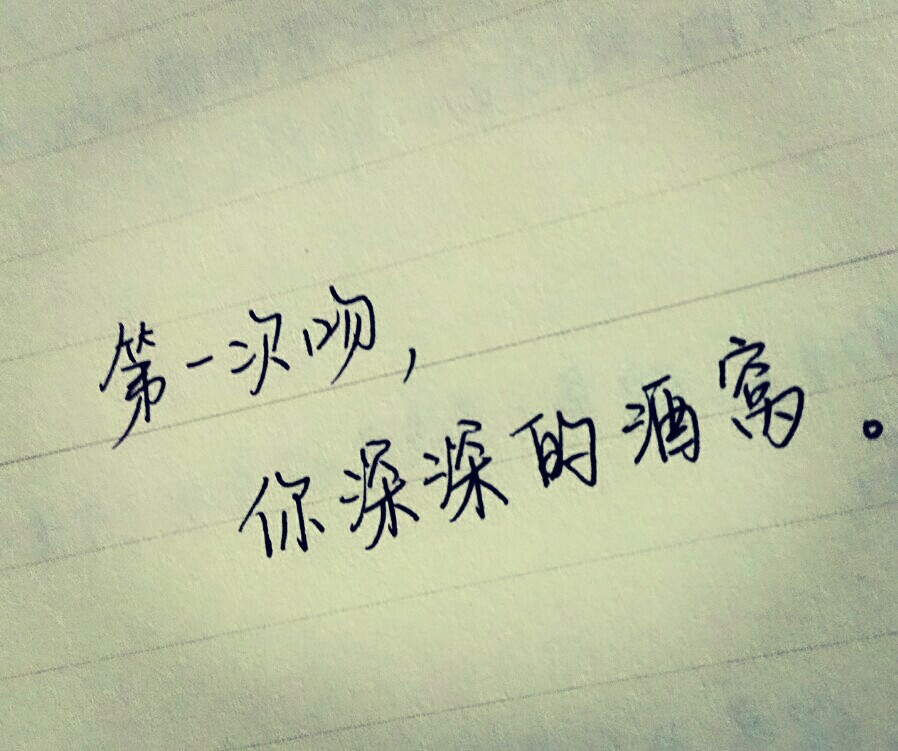 第一次吻，
你深深的酒窝。